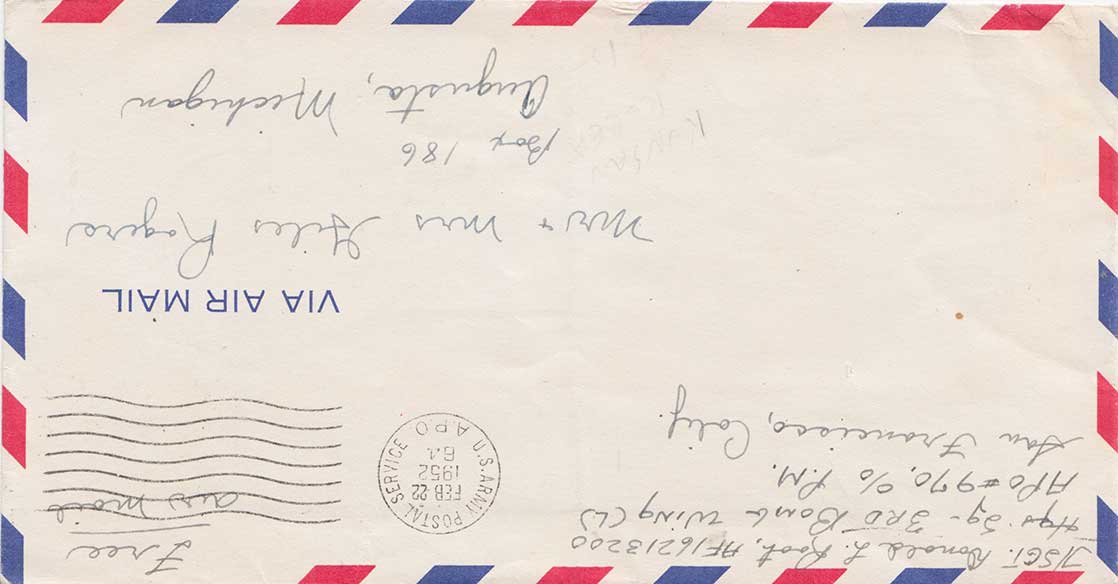 T/SGT. Donald L. Root, AF16213200
Hqs. Sq- 3RD Bomb Wing (L)
APO #970, c/o P.M.
San Francisco, Calif.
Free
air mail
U.S. ARMY POSTAL SERVICE
FEB 22
1952
A.P.O
VIA AIR MAIL
Mr + Mrs Giles Rogers
Box 186
Augusta, Michigan